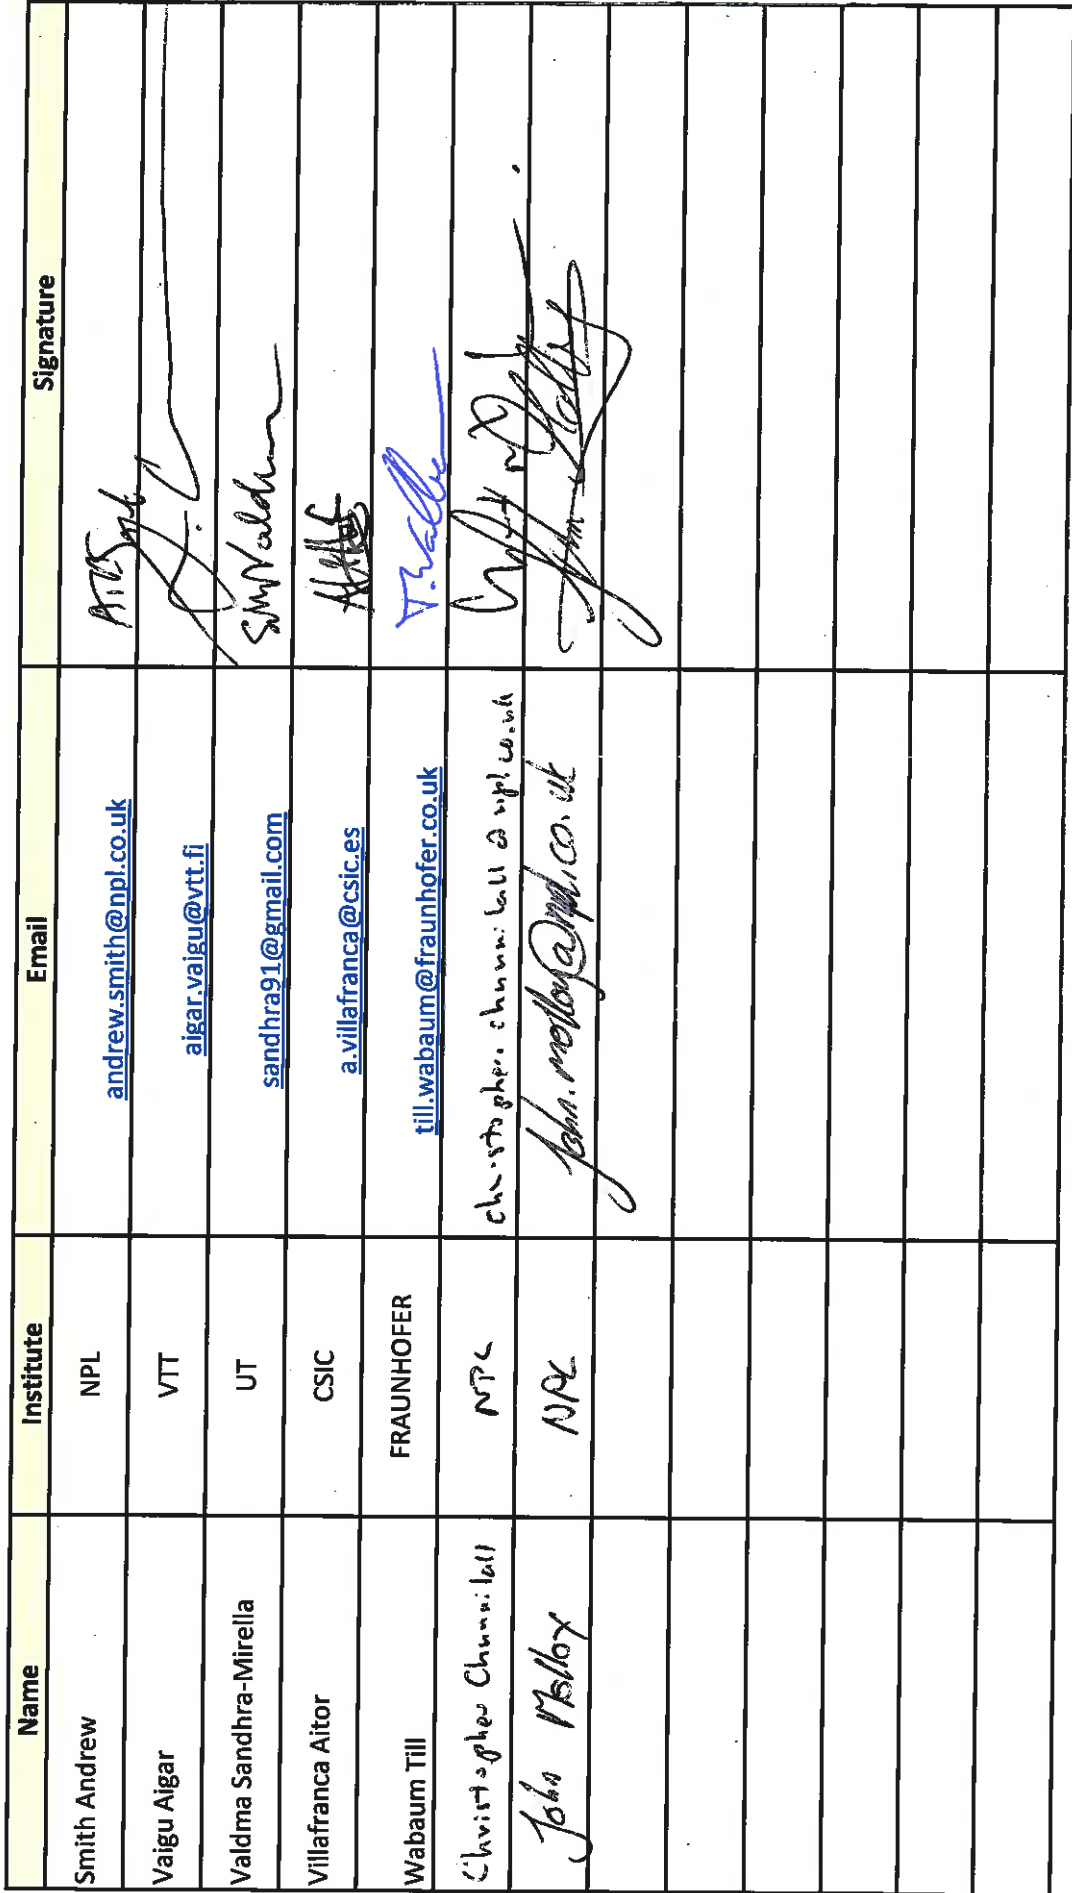 Name Institute Email Signature
Smith Andrew NPL andrew.smith@npl.co.uk
Vaigu Aigar VTT aigar.vaigu@vtt.fi
Valdma Sandhra-Mirella UT sandhra91@gmail.com SMValdma
Villafranca Aitor CSIC a.villafranca@csic.es
Wabaum Till FRAUNHOFER till.wabaum@fraunhofer.co.uk
Christopher Chunnilall NPL christopher.chunnilall@npl.co.uk
John Molloy NPL john.molloy@npl.co.uk John Molloy